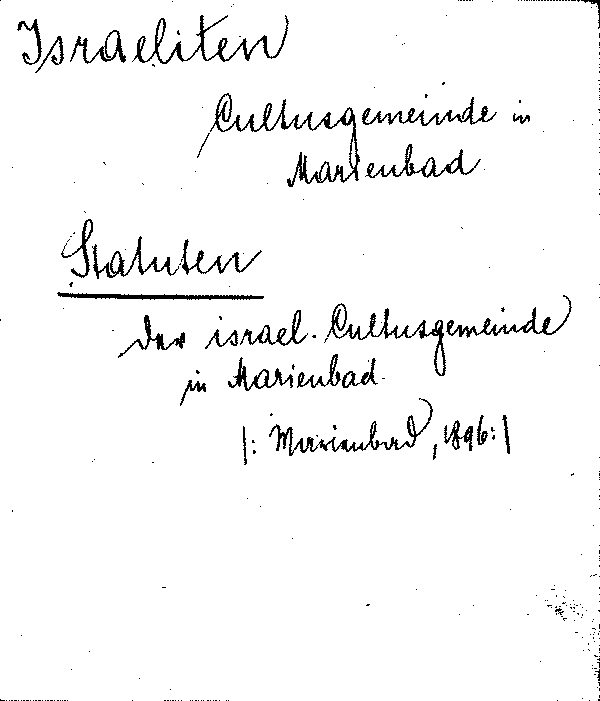 Israeliten
Cultusgemeinde in
Marienbad
Statuten
der israel. Cultusgemeinde
in Marienbad.
|: Marienbad, 1896:|